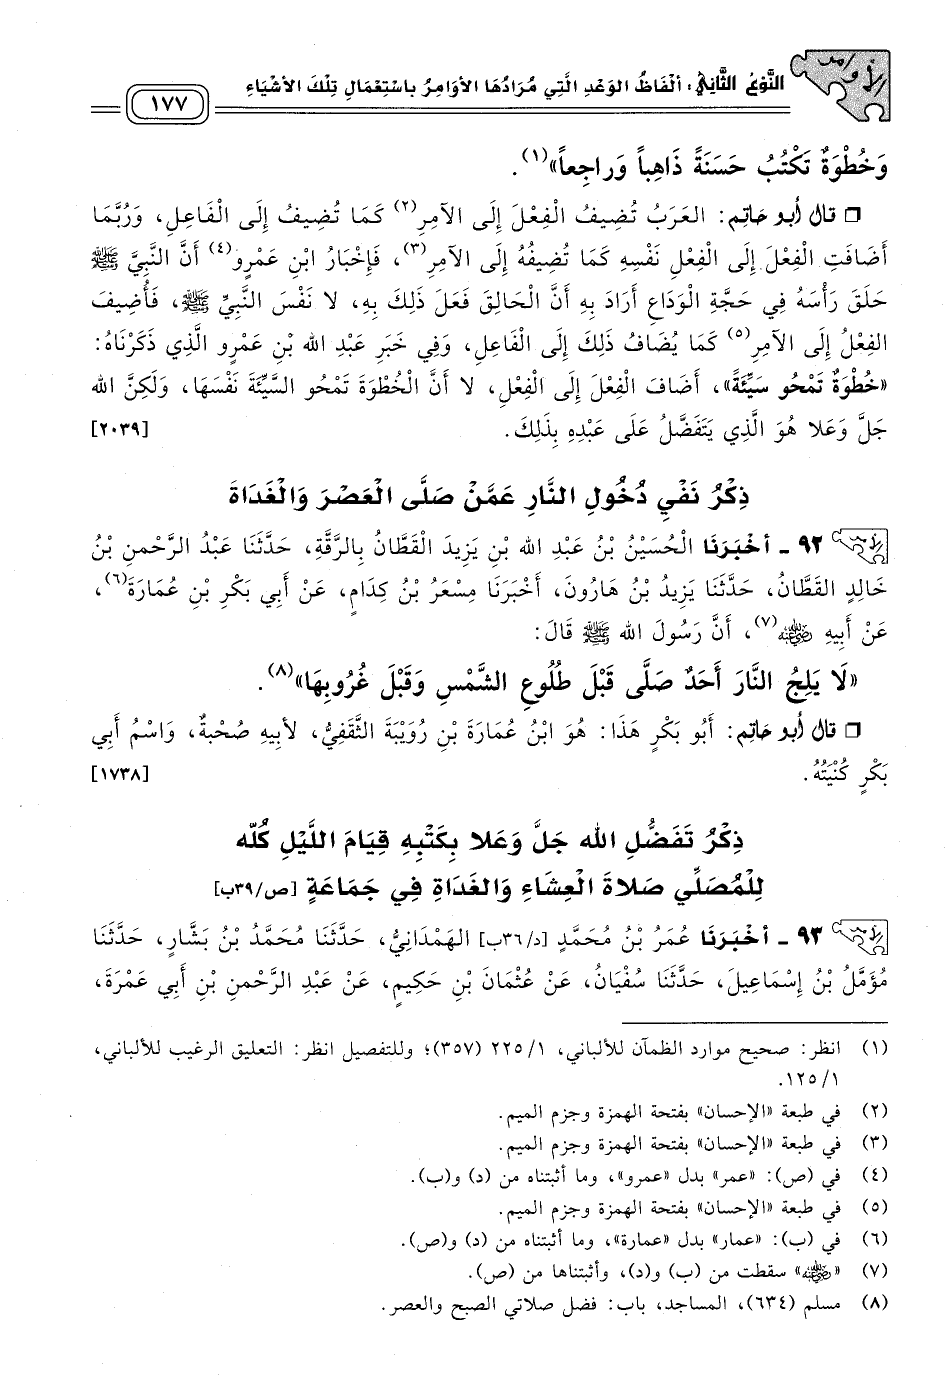 الأوامر
النَّوْعُ الثَّانِي: ألْفَاظُ الوَعْدِ الَّتِي مُرَادُهَا الأوَامِرُ بِاسْتِعْمَالِ تِلْكَ الأشْيَاءِ
١٧٧
وَخُطْوَةٌ تَكْتُبُ حَسَنَةً ذَاهِباً وَرَاجِعاً»(١).
□ قَالَ أَبُو حَاتِم: العَرَبُ تُضِيفُ الْفِعْلَ إِلَى الآمِرِ(٢) كَمَا تُضِيفُ إِلَى الْفَاعِلِ، وَرُبَّمَا
أَضَافَتِ الْفِعْلَ إِلَى الْفِعْلِ نَفْسِهِ كَمَا تُضِيفُهُ إِلَى الآمِرِ(٣)، فَإِخْبَارُ ابْنِ عَمْرٍو(٤) أَنَّ النَّبِيَّ ﷺ
حَلَقَ رَأْسَهُ فِي حَجَّةِ الْوَدَاعِ أَرَادَ بِهِ أَنَّ الْحَالِقَ فَعَلَ ذَلِكَ بِهِ، لا نَفْسَ النَّبِيِّ ﷺ، فَأُضِيفَ
الفِعْلُ إِلَى الآمِرِ(٥) كَمَا يُضَافُ ذَلِكَ إِلَى الْفَاعِلِ، وَفِي خَبَرِ عَبْدِ الله بْنِ عَمْرٍو الَّذِي ذَكَرْنَاهُ:
«خُطْوَةٌ تَمْحُو سَيِّئَةً»، أَضَافَ الْفِعْلَ إِلَى الْفِعْلِ، لا أَنَّ الْخُطْوَةَ تَمْحُو السَّيِّئَةَ نَفْسَهَا، وَلَكِنَّ الله
جَلَّ وَعَلا هُوَ الَّذِي يَتَفَضَّلُ عَلَى عَبْدِهِ بِذَلِكَ. [٢٠٣٩]
ذِكْرُ نَفْيِ دُخُولِ النَّارِ عَمَّنْ صَلَّى الْعَصْرَ وَالْغَدَاةَ
٩٢ - أخْبَرَنَا الْحُسَيْنُ بْنُ عَبْدِ الله بْنِ يَزِيدَ الْقَطَّانُ بِالرَّقَّةِ، حَدَّثَنَا عَبْدُ الرَّحْمنِ بْنُ
خَالِدٍ القَطَّانُ، حَدَّثَنَا يَزِيدُ بْنُ هَارُونَ، أَخْبَرَنَا مِسْعَرُ بْنُ كِدَامٍ، عَنْ أَبِي بَكْرِ بْنِ عُمَارَةَ(٦)،
عَنْ أَبِيهِ ﵁(٧)، أَنَّ رَسُولَ الله ﷺ قَالَ:
«لَا يَلِجُ النَّارَ أَحَدٌ صَلَّى قَبْلَ طُلُوعِ الشَّمْسِ وَقَبْلَ غُرُوبِهَا»(٨).
□ قَالَ أَبُو حَاتِم: أَبُو بَكْرٍ هَذَا: هُوَ ابْنُ عُمَارَةَ بْنِ رُوَيْبَةَ الثَّقَفِيُّ، لأبِيهِ صُحْبةٌ، وَاسْمُ أَبِي
بَكْرٍ كُنْيَتُهُ. [١٧٣٨]
ذِكْرُ تَفَضُّلِ الله جَلَّ وَعَلا بِكَتْبِهِ قِيَامَ اللَّيْلِ كُلّه
لِلْمُصَلِّي صَلاةَ الْعِشَاءِ وَالغَدَاةِ فِي جَمَاعَةٍ [ص/٣٩ب]
٩٣ - أخْبَرَنَا عُمَرُ بْنُ مُحَمَّدٍ [د/٣٦ب] الهَمْدَانِيُّ، حَدَّثَنَا مُحَمَّدُ بْنُ بَشَّارٍ، حَدَّثَنَا
مُؤَمَّلُ بْنُ إِسْمَاعِيلَ، حَدَّثَنَا سُفْيَانُ، عَنْ عُثْمَانَ بْنِ حَكِيمٍ، عَنْ عَبْدِ الرَّحْمنِ بْنِ أَبِي عَمْرَةَ،
(١) انظر: صحيح موارد الظمآن للألباني، ٢٢٥/١ (٣٥٧)؛ وللتفصيل انظر: التعليق الرغيب للألباني،
١٢٥/١.
(٢) في طبعة «الإحسان» بفتحة الهمزة وجزم الميم.
(٣) في طبعة «الإحسان» بفتحة الهمزة وجزم الميم.
(٤) في (ص): «عمر» بدل «عمرو»، وما أثبتناه من (د) و(ب).
(٥) في طبعة «الإحسان» بفتحة الهمزة وجزم الميم.
(٦) في (ب): «عمار» بدل «عمارة»، وما أثبتناه من (د) و(ص).
(٧) «﵁» سقطت من (ب) و(د)، وأثبتناها من (ص).
(٨) مسلم (٦٣٤)، المساجد، باب: فضل صلاتي الصبح والعصر.